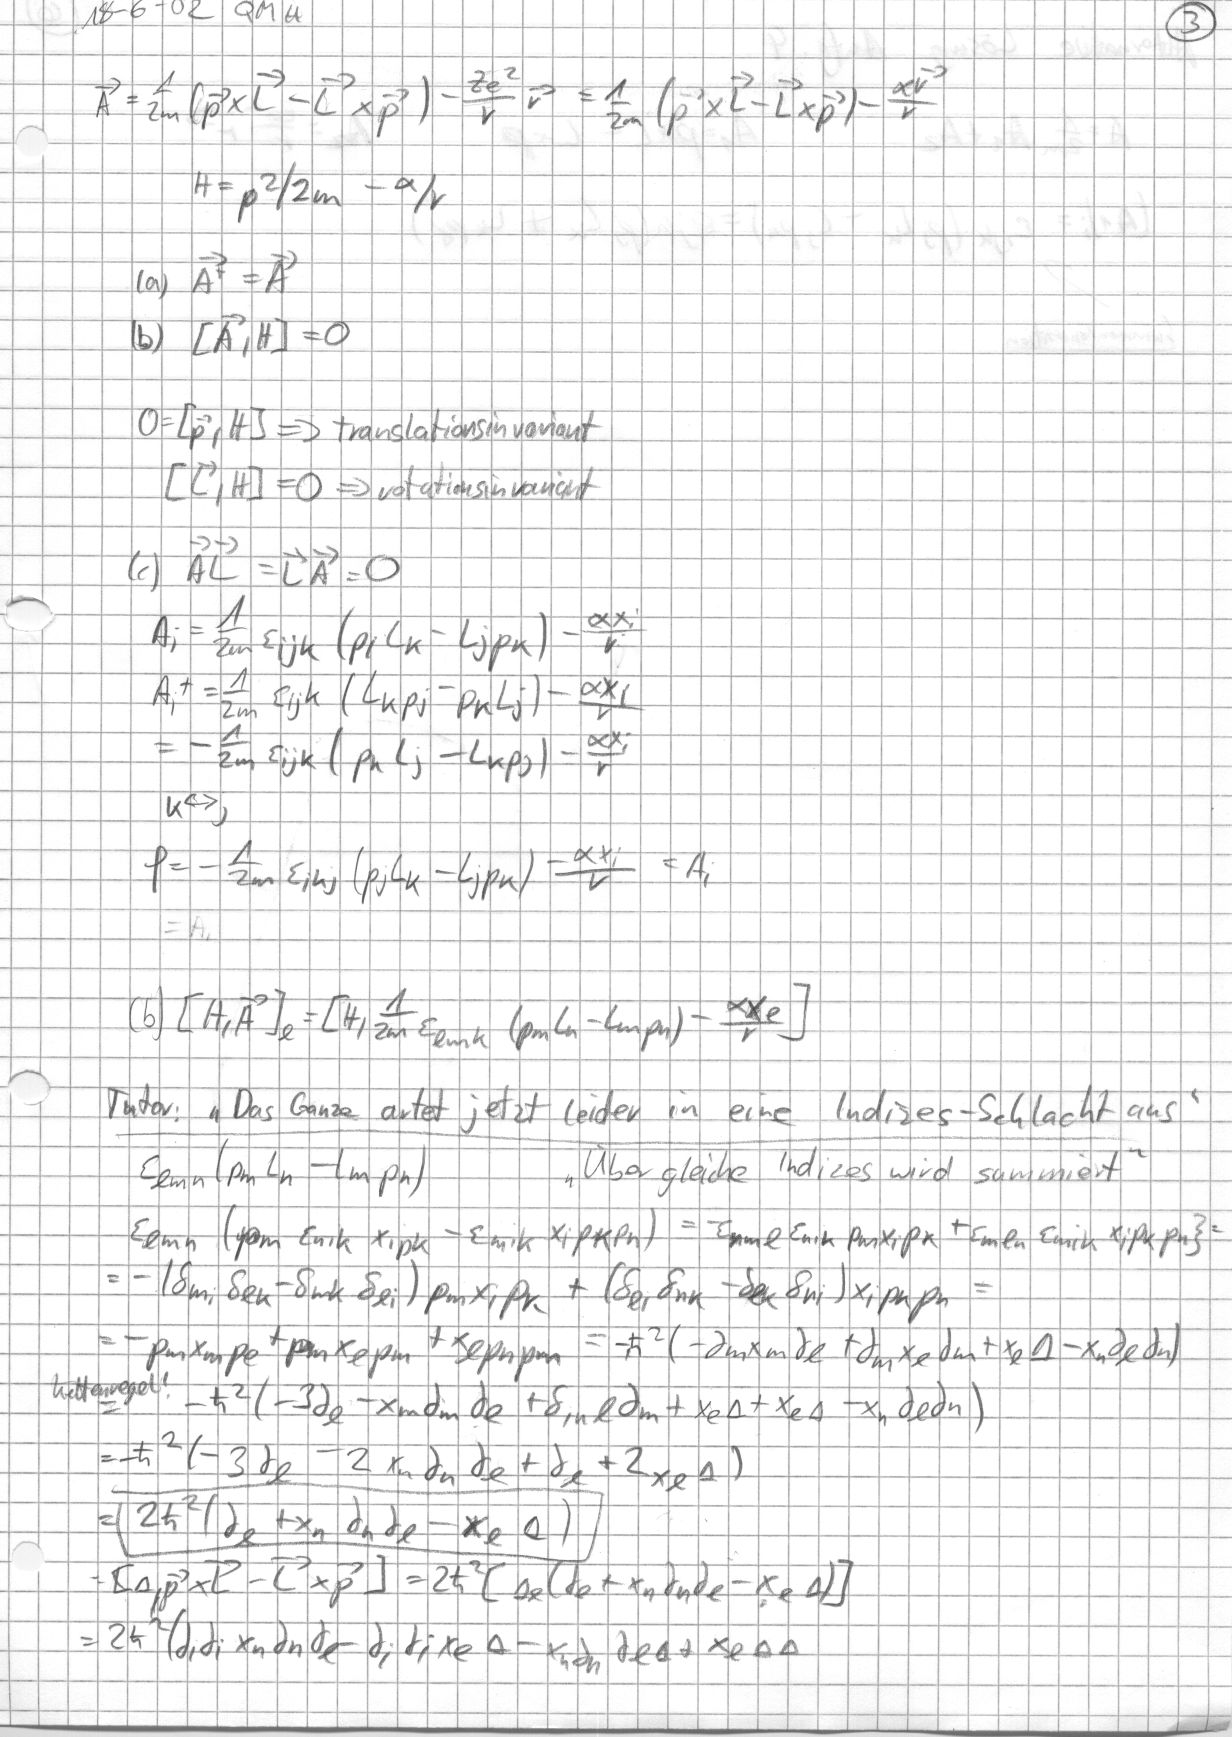 18-6-02 QMII
③
A⃗ = 1/2m (p⃗×L⃗ − L⃗×p⃗) − Ze²/r r⃗ = 1/2m (p⃗×L⃗ − L⃗×p⃗) − αr⃗/r
H = p²/2m − α/r
(a) A⃗⁺ = A⃗
(b) [A⃗, H] = 0
0 = [p⃗, H] => translationsinvariant
[L⃗, H] = 0 => rotationsinvariant
(c) A⃗L⃗ = L⃗A⃗ = 0
A_i = 1/2m ε_ijk (p_j L_k − L_j p_k) − αx_i/r
A_i⁺ = 1/2m ε_ijk (L_k p_j − p_k L_j) − αx_i/r
= − 1/2m ε_ijk (p_k L_j − L_k p_j) − αx_i/r
k↔j
= − 1/2m ε_ikj (p_j L_k − L_j p_k) − αx_i/r = A_i
= A_i
(b) [H, A⃗]_e = [H, 1/2m ε_emk (p_m L_n − L_m p_n) − αx_e/r]
Tutor: „Das Ganze artet jetzt leider in eine Indizes-Schlacht aus“
ε_emn (p_m L_n − L_m p_n) „Über gleiche Indizes wird summiert“
ε_emn (p_m ε_nik x_i p_k − ε_mik x_i p_k p_n) = −ε_nme ε_nik p_m x_i p_k + ε_men ε_mik x_i p_k p_n} =
= −(δ_mi δ_ek − δ_mk δ_ei) p_m x_i p_k + (δ_ei δ_nk − δ_ek δ_ni) x_i p_k p_n =
= −p_m x_m p_e + p_m x_e p_m + x_e p_n p_n = −ħ² (−∂_m x_m ∂_e + ∂_m x_e ∂_m + x_e Δ − x_n ∂_e ∂_n)
Kettenregel! −ħ² (−3∂_e − x_m ∂_m ∂_e + δ_me ∂_m + x_e Δ + x_e Δ − x_n ∂_e ∂_n)
= −ħ² (−3∂_e − 2 x_n ∂_n ∂_e + ∂_e + 2 x_e Δ)
= 2ħ² (∂_e + x_n ∂_n ∂_e − x_e Δ)
− [Δ, p⃗×L⃗ − L⃗×p⃗] = 2ħ² [Δ_e (∂_e + x_n ∂_n ∂_e − x_e Δ)]
= 2ħ² (∂_i ∂_i x_n ∂_n ∂_e − ∂_i ∂_i x_e Δ − x_n ∂_n ∂_e Δ + x_e Δ Δ